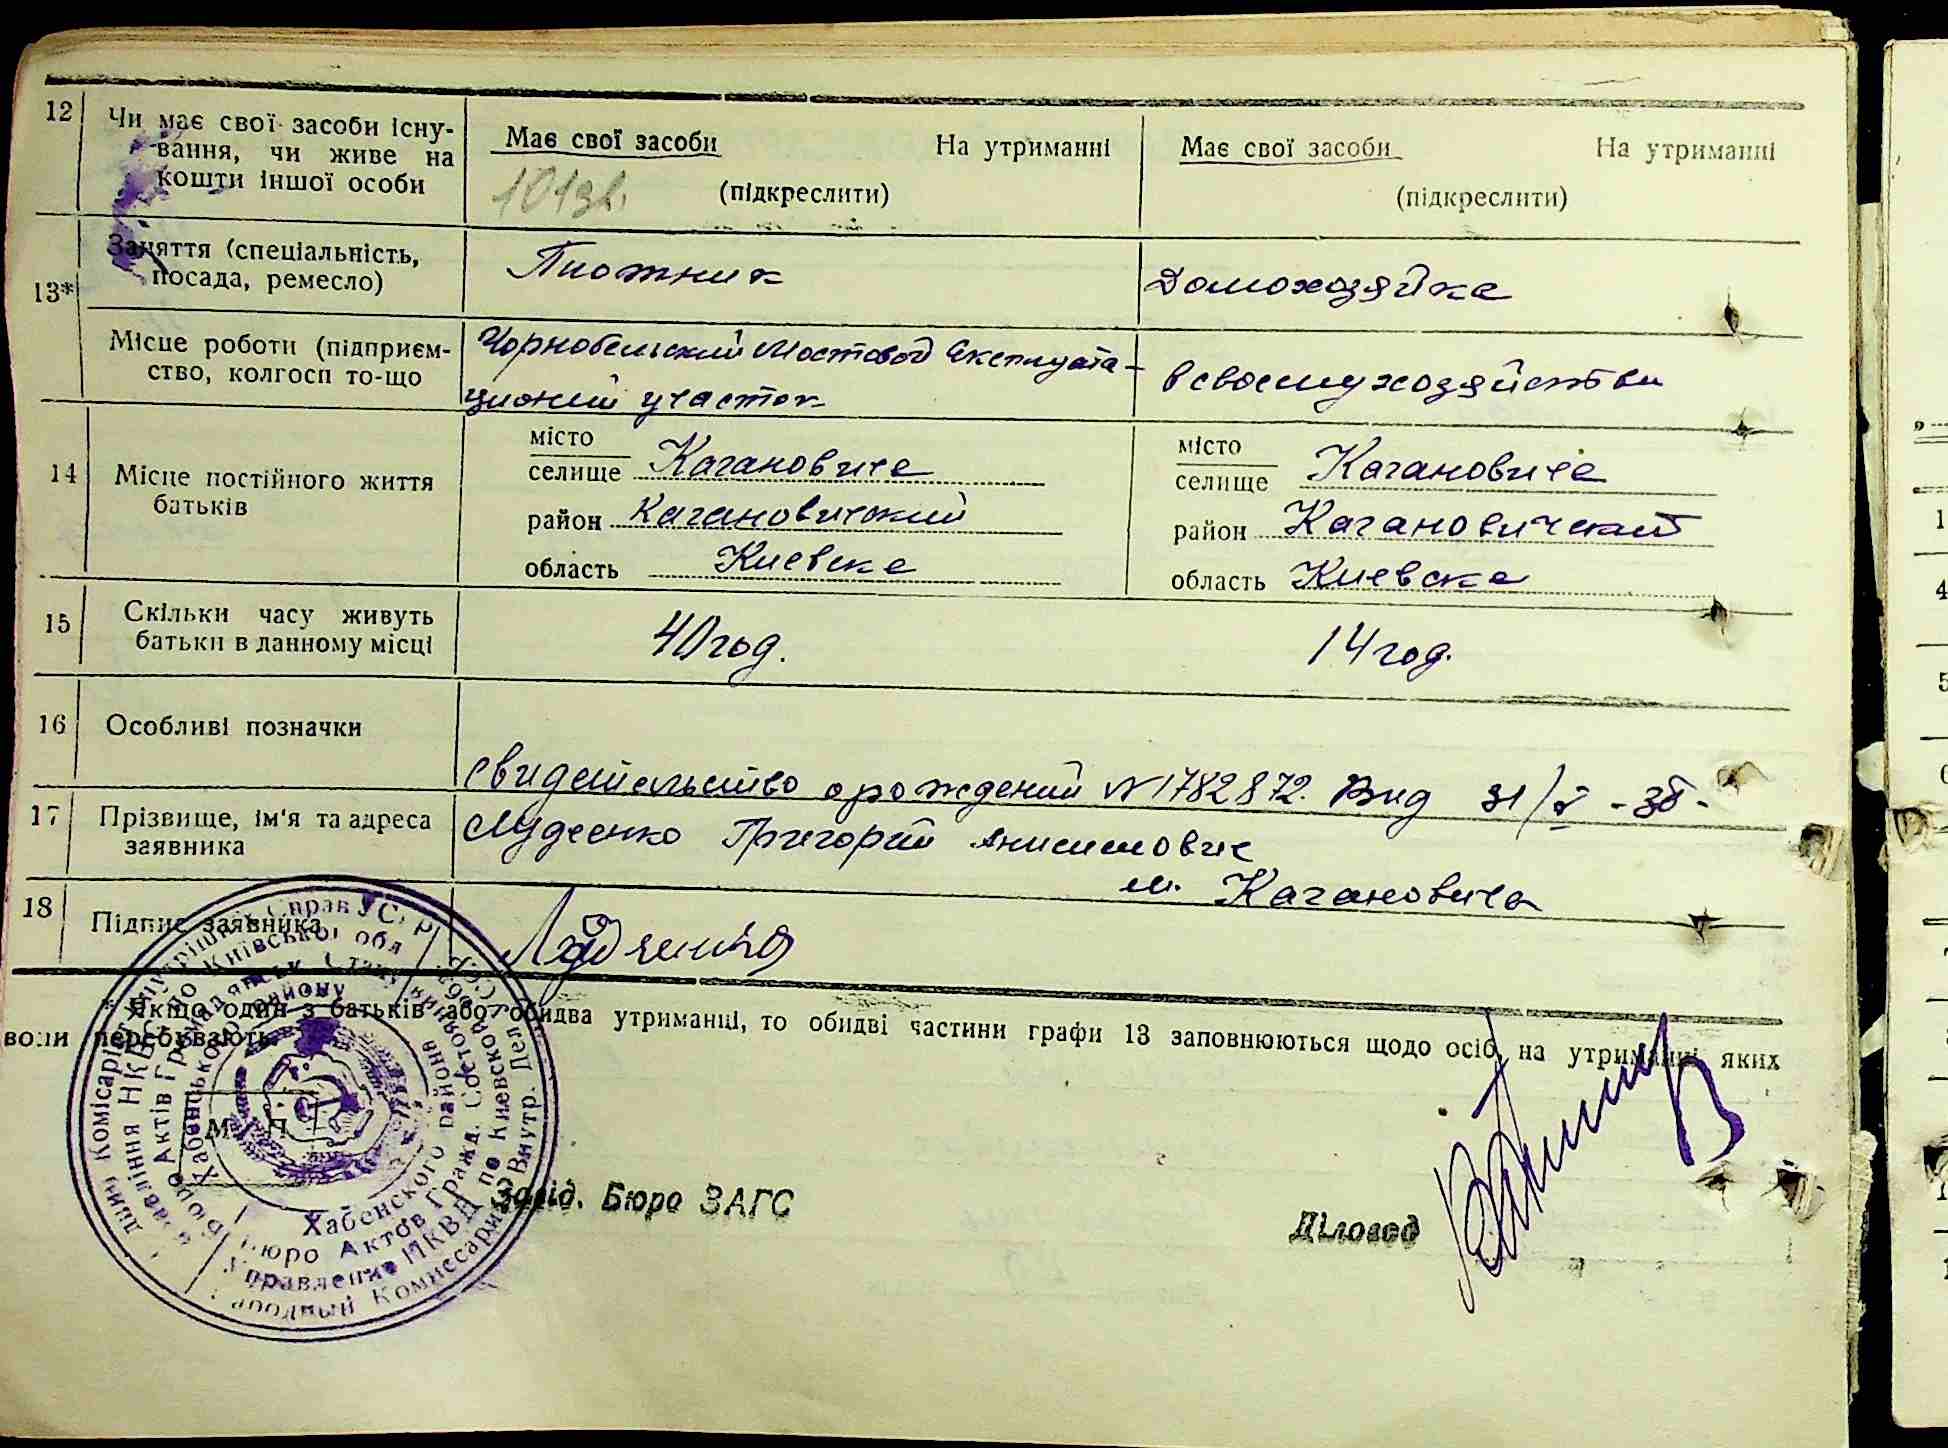 12
Чи має свої засоби існу-
вання, чи живе на
кошти іншої особи
Має свої засоби На утриманні
(підкреслити)
Має свої засоби На утриманні
(підкреслити)
13*
Заняття (спеціальність,
посада, ремесло)
Плотник
Домохозяйка
Місце роботи (підприєм-
ство, колгосп то-що
Чорнобельский Мостовой Експлуата-
ционий участок
в своему хозяйстви
14
Місце постійного життя
батьків
місто
селище Кагановича
район Кагановичский
область Киевске
місто
селище Кагановича
район Кагановичский
область Киевска
15
Скільки часу живуть
батьки в данному місці
40 год.
14 год.
16
Особливі позначки
свидетельство о рождений № 1782872. Вид 31/V - 38 -
17
Прізвище, ім'я та адреса
заявника
Лудченко Григорий Анисимович
м. Кагановича
18
Підпис заявника
* Якщо один з батьків або обидва утриманці, то обидві частини графи 13 заповнюються щодо осіб, на утриманні яких
вони перебувають.
М. П.
Хабенского района
Бюро Актов Гражд. Состояния
Управление НКВД по Киевской обл.
Народный Комиссариат Внутр. Дел УССР
Завід. Бюро ЗАГС
Діловод